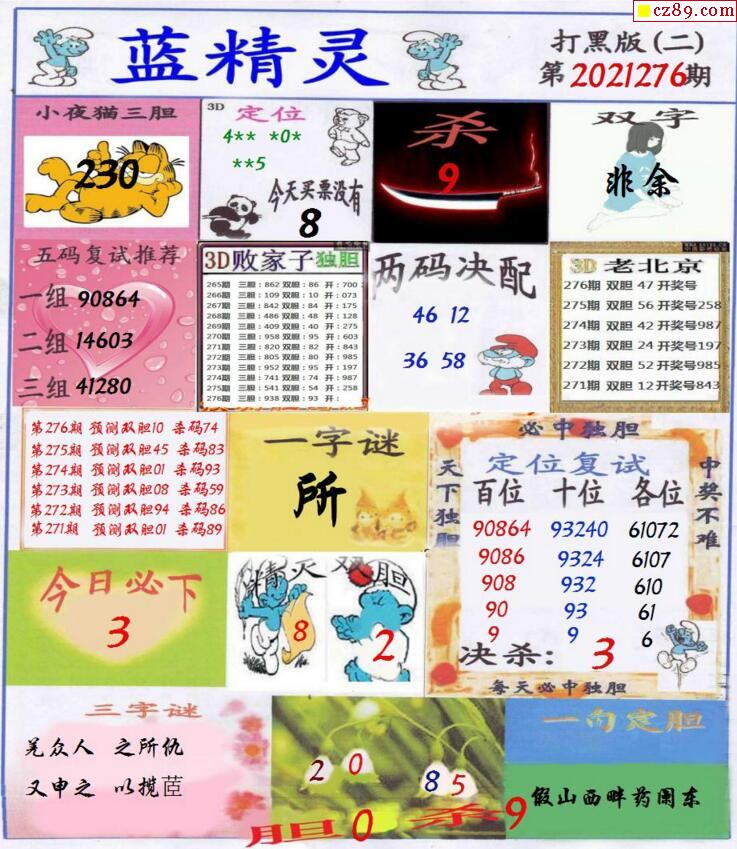 cz89.com
蓝精灵
打黑版(二)
第2021276期
小夜猫三胆
230
3D
定位
4** *0*
**5
今天买票没有
8
杀
9
双字
非余
五码复试推荐
一组 90864
二组 14603
三组 41280
3D败家子独胆
265期 三胆:862 双胆:86 开:700
266期 三胆:109 双胆:10 开:073
267期 三胆:842 双胆:84 开:175
268期 三胆:486 双胆:48 开:128
269期 三胆:409 双胆:40 开:275
270期 三胆:958 双胆:95 开:603
271期 三胆:820 双胆:82 开:843
272期 三胆:805 双胆:80 开:985
273期 三胆:952 双胆:95 开:197
274期 三胆:741 双胆:74 开:987
275期 三胆:541 双胆:54 开:258
276期 三胆:938 双胆:93 开:
两码决配
46 12
36 58
3D 老北京
276期 双胆 47 开奖号
275期 双胆 56 开奖号258
274期 双胆 42 开奖号987
273期 双胆 24 开奖号197
272期 双胆 52 开奖号985
271期 双胆 12 开奖号843
第276期 预测双胆10 杀码74
第275期 预测双胆45 杀码83
第274期 预测双胆01 杀码93
第273期 预测双胆08 杀码59
第272期 预测双胆94 杀码86
第271期 预测双胆01 杀码89
一字谜
所
必中独胆
天下独胆
中奖不难
定位复试
百位 十位 各位
90864 93240 61072
9086 9324 6107
908 932 610
90 93 61
9 9 6
决杀: 3
每天必中独胆
今日必下
3
精灵双胆
8 2
三字谜
羌众人 之所仇
又申之 以揽茝
2 0
8 5
胆 0 杀 9
一向定胆
假山西畔药阑东